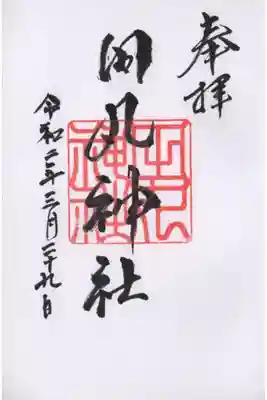 奉拝
田丸神社
令和二年三月二十九日